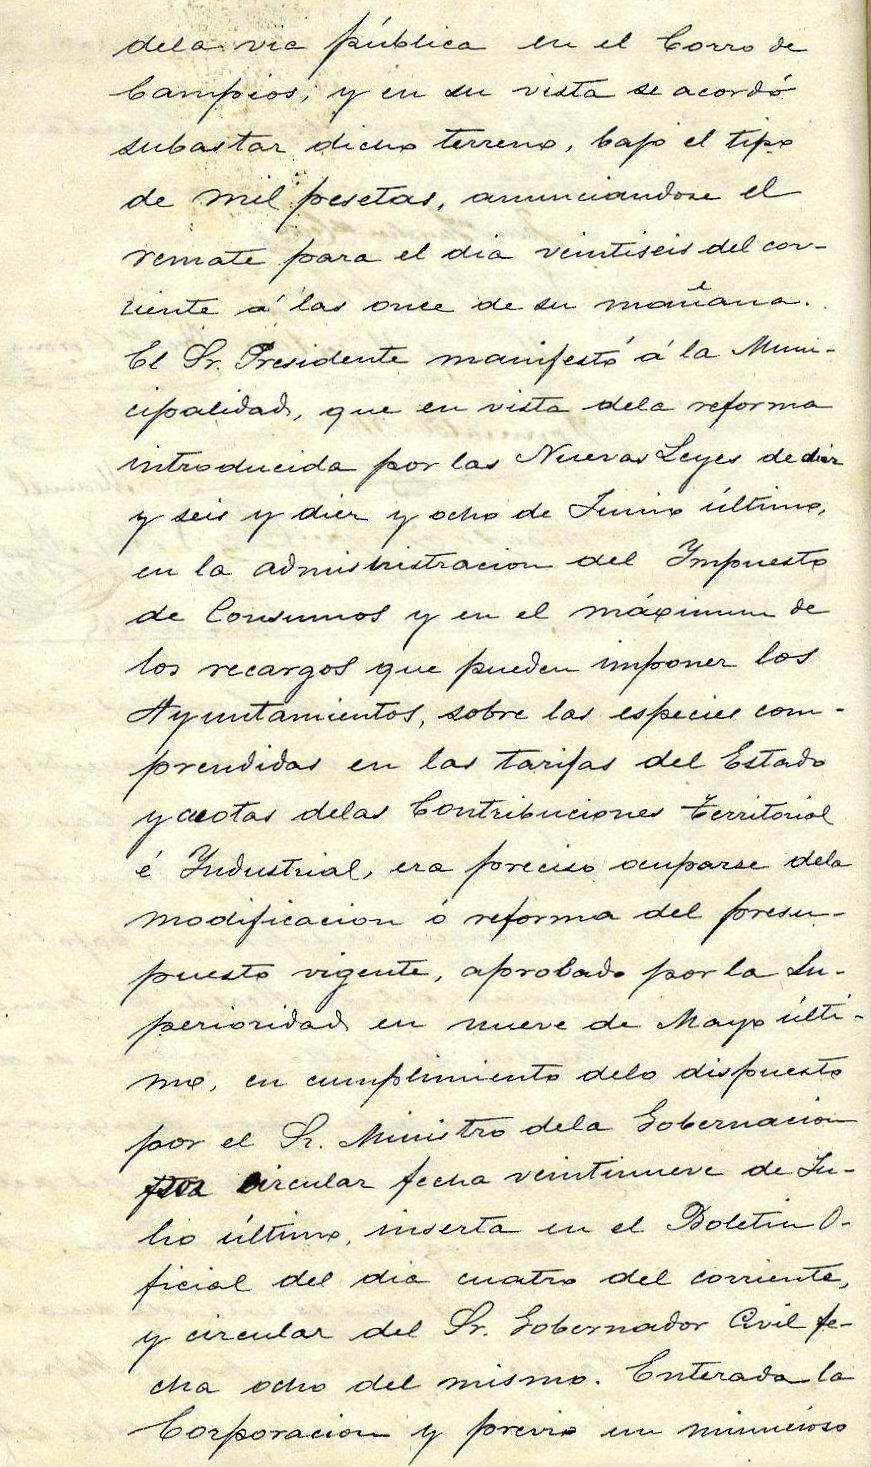 dela via pública en el Corro de
Campios, y en su vista se acordó
subastar dicho terreno, bajo el tipo
de mil pesetas, anunciandose el
remate para el dia veintiseis del cor-
riente á las once de su mañana.
El Sr. Presidente manifestó á la Muni-
cipalidad, que en vista dela reforma
introducida por las Nuevas Leyes de diez
y seis y diez y ocho de Junio último,
en la administracion del Impuesto
de Consumos y en el máximum de
los recargos que pueden imponer los
Ayuntamientos, sobre las especies com-
prendidas en las tarifas del Estado
y cuotas delas Contribuciones Territorial
é Industrial, era preciso ocuparse dela
modificacion ó reforma del presu-
puesto vigente, aprobado por la Su-
perioridad en nueve de Mayo últi-
mo, en cumplimiento delo dispuesto
por el Sr. Ministro dela Gobernacion
circular fecha veintinueve de Ju-
lio último, inserta en el Boletin O-
ficial del dia cuatro del corriente,
y circular del Sr. Gobernador Civil fe-
cha ocho del mismo. Enterada la
Corporacion y previo un minucioso